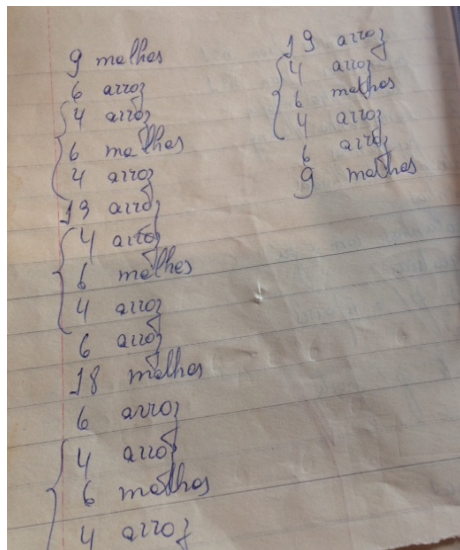 9 malhas
6 arroz
4 arroz
6 malhas
4 arroz
19 arroz
4 arroz
6 malhas
4 arroz
6 arroz
18 malhas
6 arroz
4 arroz
6 malhas
4 arroz
19 arroz
4 arroz
6 malhas
4 arroz
6 arroz
9 malhas